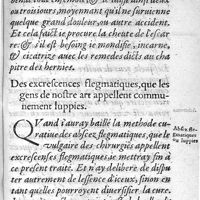 & troisjours, moyennant qu'il ne survienne
quelque grand douleur, ou autre accident.
Et cela faict ie procure la cheute de l'escar
re: & s'il est besoing ie mondifie, incarne,
& cicatrize avec les remedes dicts au cha
pitre des hernies.
Des excrescences flegmatiques, que les
gens de nostre art appellent commu-
niement luppies.
QVand i'auray baillé la methode cu-
rative des abscez flegmatiques, que le
vulgaire des chirurgiēs appellent
excrescenses flegmatiques, ie mettray fin à
ce present traité. Et n'ay deliberé de dispu-
ter autrement de l'essence d'iceux: sinon en
tant quelles pourroyent diversifier la cure.
Abscez fle-
gmatiques
ou luppies